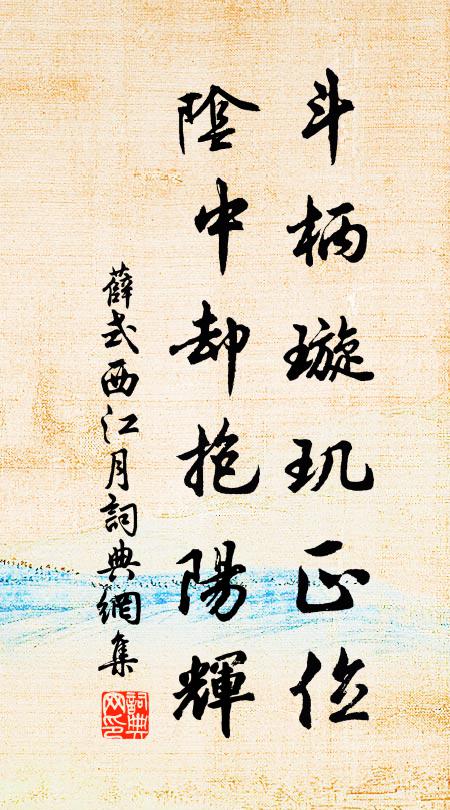 斗柄璇玑正位
陰中却抱陽輝
薛式西江月詞典網集
詞典
网印